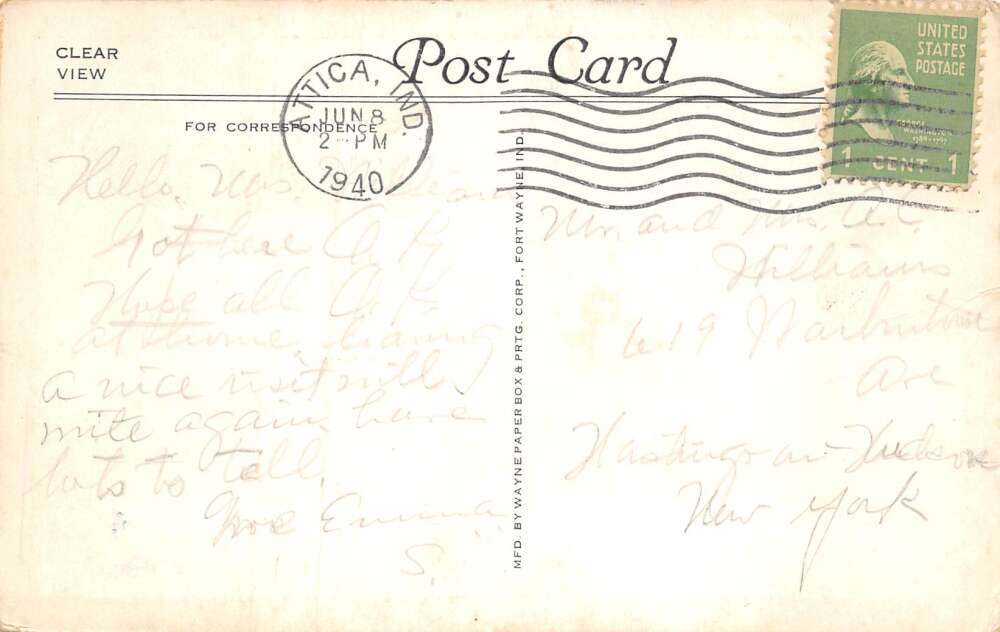 CLEAR
VIEW
Post Card
FOR CORRESPONDENCE
ATTICA, IND.
JUN 8
2 - PM
1940
UNITED
STATES
POSTAGE
1 CENT 1
Hello, Mrs.
Got here O.K
Hope all O.K.
at home, having
a nice visit will
write again have
lots to tell.
Emma
S.
MFD. BY WAYNE PAPER BOX & PRTG. CORP., FORT WAYNE, IND.
Mr. and Mrs. A.C.
Williams
619 Warburton
Ave
Hastings on Hudson
New York